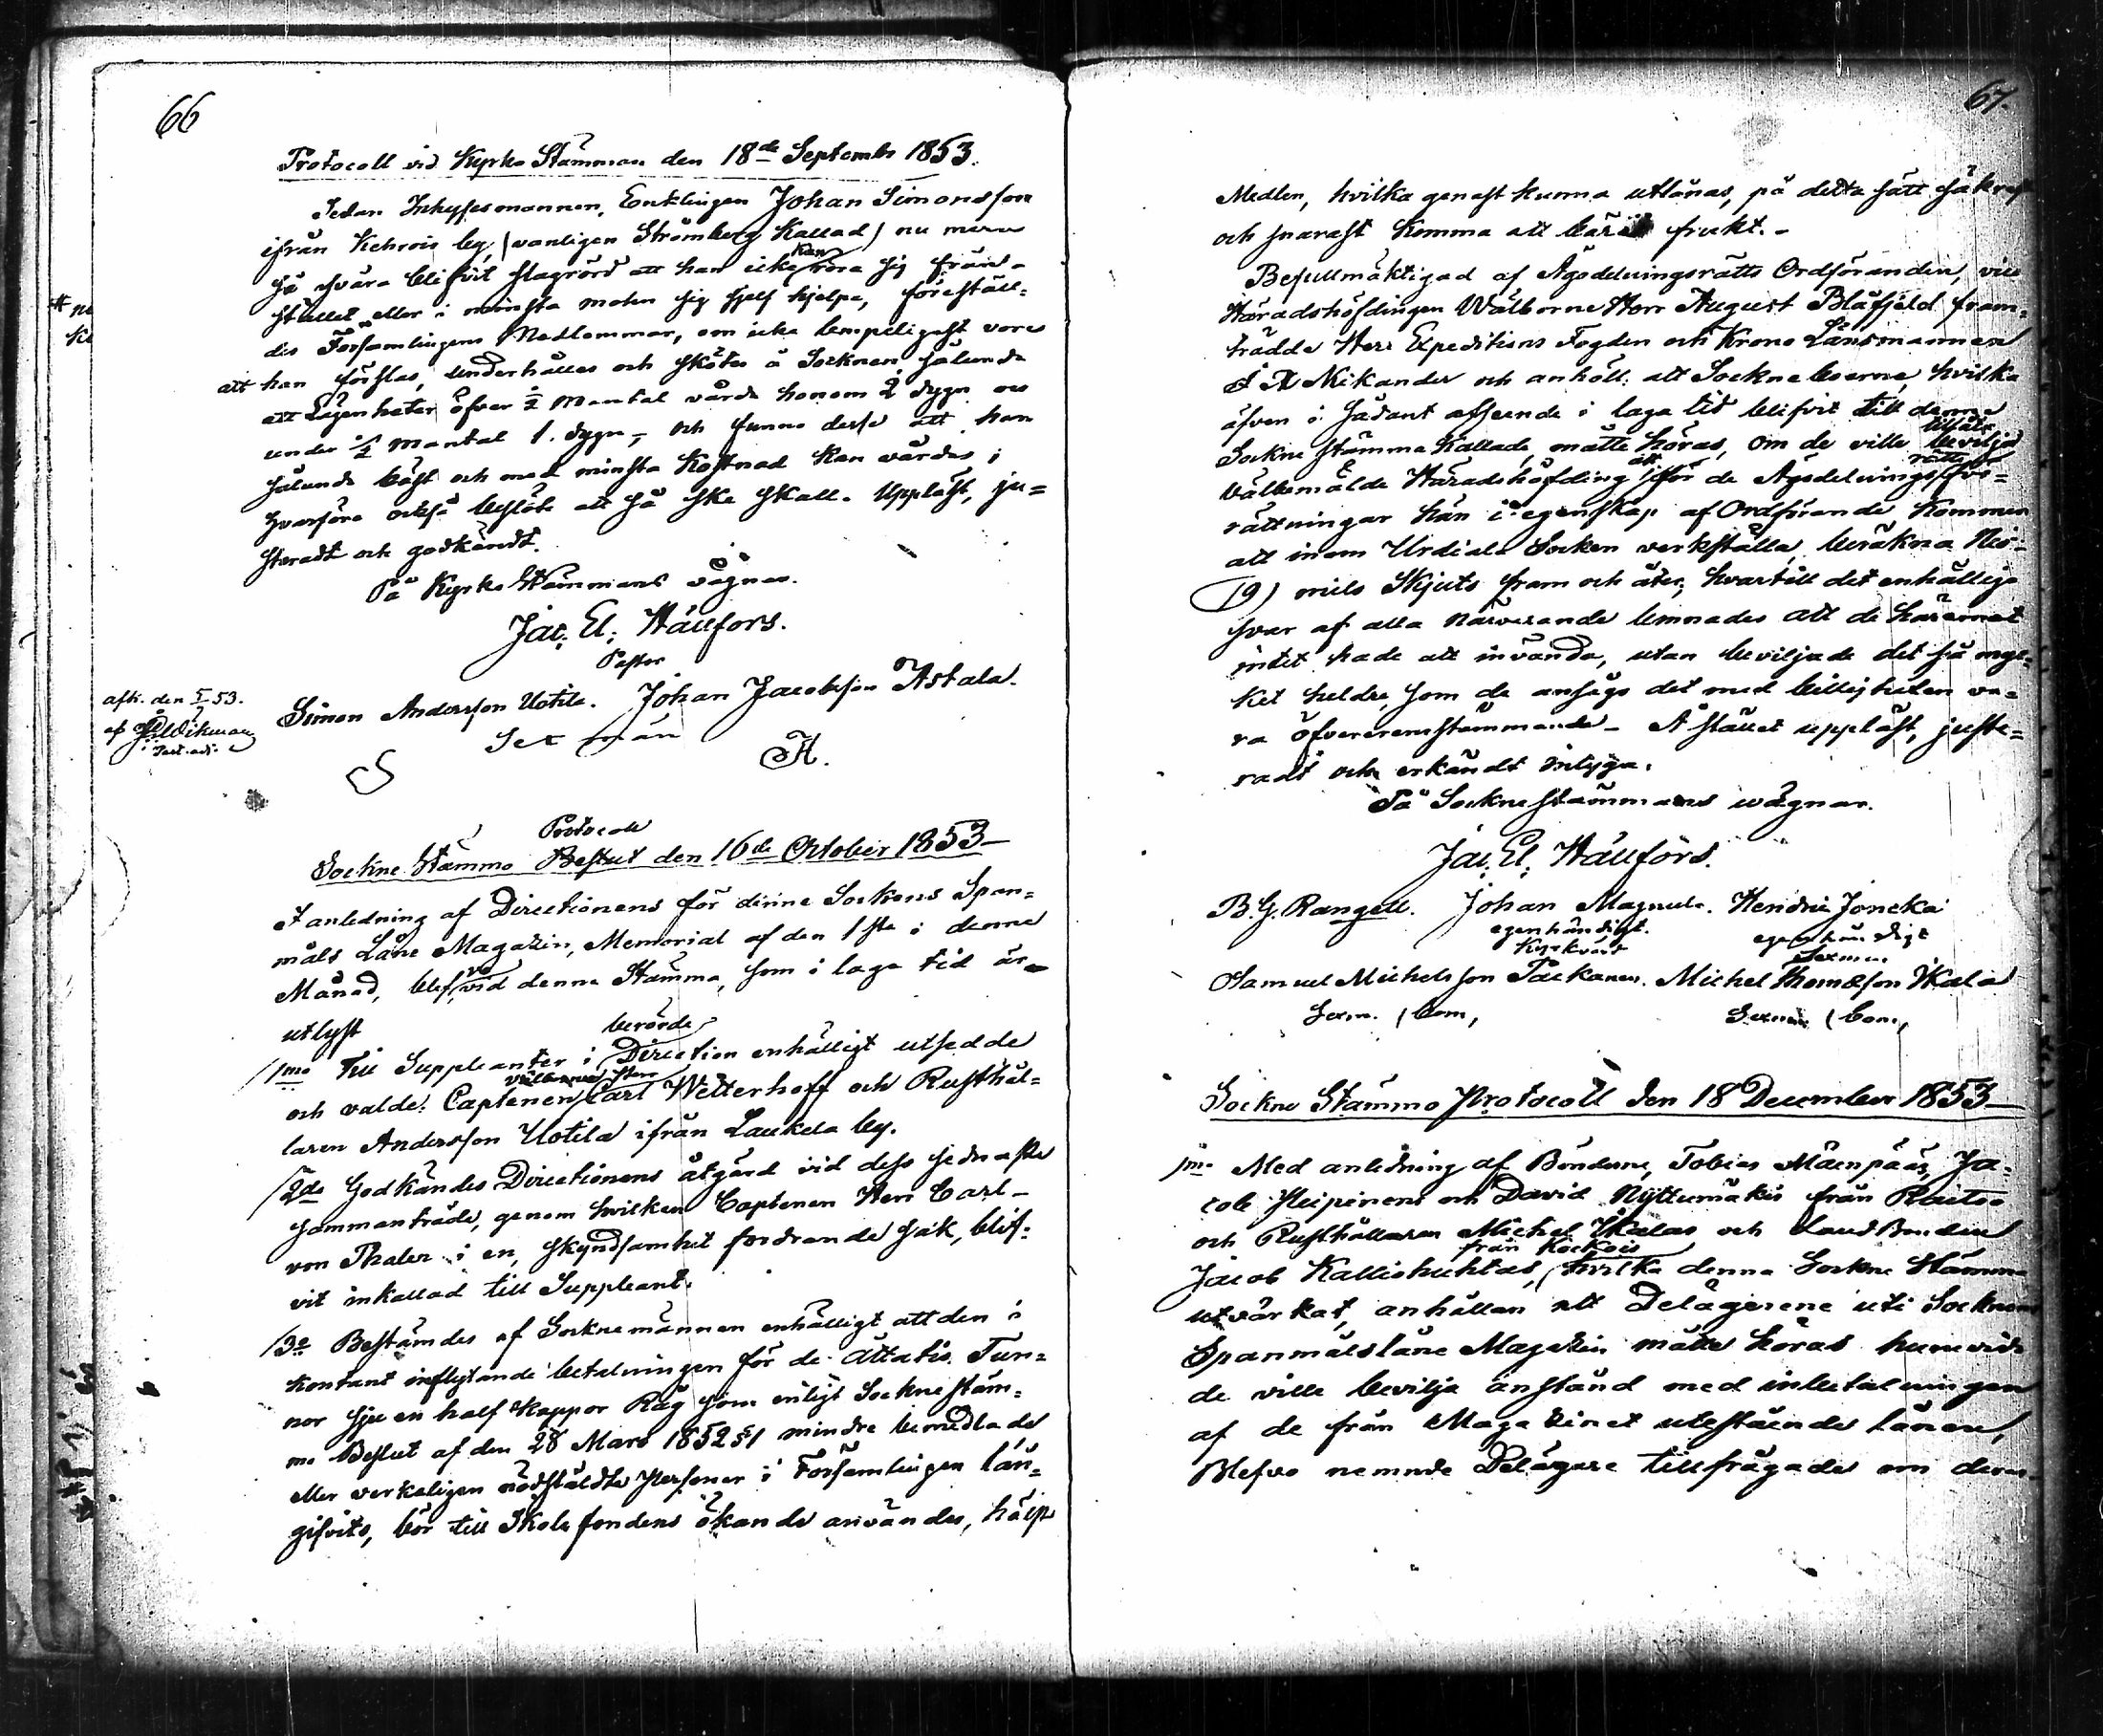 66
Protocoll vid Kyrko Stämman den 18de Septembr 1853.
Sedan Inhysesmannen, Enklingen Johan Simonsson
ifrån Kehrois by, (vanligen Strömberg Kallad) nu mera
så svåra blifvit slagrörd att han icke kan röra sig från
stället eller i minsta måtto sig sjelf hjelpa, föreställ=
des Församlingens Medlemmar, om icke lempeligast vore
att han förslas, underhålles och skötes å Socknen sålunda
att Lägenheter öfver ½ Mantal vårda honom 2 dygn och
under ½ mantal 1. dygn, och funno desse att han
sålunda bäst och med minsta Kostnad kan vårdas;
hvarföre också beslöts att så ske skall. Uppläst, ju=
steradt och godkändt.
På Kyrko Stämmans vägnar.
Jac. El. Hällfors.
Pastor
Simon Andersson Uotila. Johan Jacobsson Astala.
Sex män
afsk. den 53.
af Wikman
Protocoll
Sockne Stämmo Beslut den 16de October 1853
I anledning af Directionens för denne Sockens Span=
måls Låne Magazin, Memorial af den 1sta i denne
Månad, blefvo vid denna Stämma, som i laga tid är
utlyst
1mo Till Suppleanter i berörde Direction enhälligt utsedde
och valde: Captenen välborne Herr Carl Wetterhoff och Rusthål=
laren Andersson Uotila ifrån Laukela by.
2do Godkändes Directionens åtgärd vid dess sednaste
sammanträde, genom hvilken Captenen Herr Carl
von Thaler i en, skyndsamhet fordrande sak, blif=
vit inkallad till Suppleant.
3o Bestämdes af Socknemännen enhälligt att den i
Kontant inflytande betalningen för de åttatio Tun=
nor sju en half Kappor Råg som enligt Socknestäm=
mo Beslut af den 28 Mars 1852 §1 mindre bemedlade
eller verkeligen nödstäldte Personer i Församlingen lån=
gifvits, bör till Skolefondens ökande användas, hälst
67.
Medlen, hvilka genast kunna utlånas, på detta sätt säkrast
och snarast komma att bära frukt.
Befullmäktigad af Ägodelningsrätts Ordföranden, vice
Häradshöfdingen Wälborne Herr August Blåfjeld fram=
trädde Herr Expeditions Fogden och Krono Länsmannen
Nikander och anhöll: att Sockneboerne, hvilka
äfven i sådant afseende i laga tid blifvit till denna
Socknestämma Kallade, måtte höras, om de ville tillåta bevilja
välbemälde Häradshöfding att för de Ägodelningsrätts för=
rättningar han i egenskap af Ordförande kommer
att inom Urdiala Socken verkställa, beräkna Nio
(9) mils Skjuts fram och åter; hvartill det enhälliga
svar af alla närvarande lemnades att de häremot
intet hade att invända, utan beviljade det så myc=
ket heldre, som de ansågo det med billigheten va=
ra öfverensstämmande. Å stället uppläst, juste=
radt och erkändt intyga.
På Socknestämmans wägnar.
Jac. El. Hällfors.
B. G. Rangell. Johan Magnula. Hendric Joncka
egenhändigt. egenhändigt
Kyrkvärd Sexman
Samuel Michelsson Packanen. Michel Thomasson Ikala
Sexm. (bom, Sexman (bom,
Sockne Stämmo Protocoll den 18 December 1853
1mo Med anledning af Bönderne, Tobias Mäenpääs, Ja=
cob Heipinens och David Nyttymäkis från Raitoo
och Rusthållaren Michel Ikalas och Landbonden
Jacob Kalliohuhtas, från Kockois hvilka denna Sockne Stämma
utvärkat, anhållan att Delägerene uti Socknens
Spanmålslåne Magazin måtte höras huruvida
de ville bevilja anstånd med inbetalningen
af de från Magazinet utestående lånen,
Blefvo nemnde Delägare tillfrågade om deras